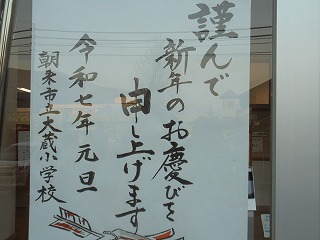 謹んで
新年のお慶びを
申し上げます
令和七年元旦
朝来市立大蔵小学校